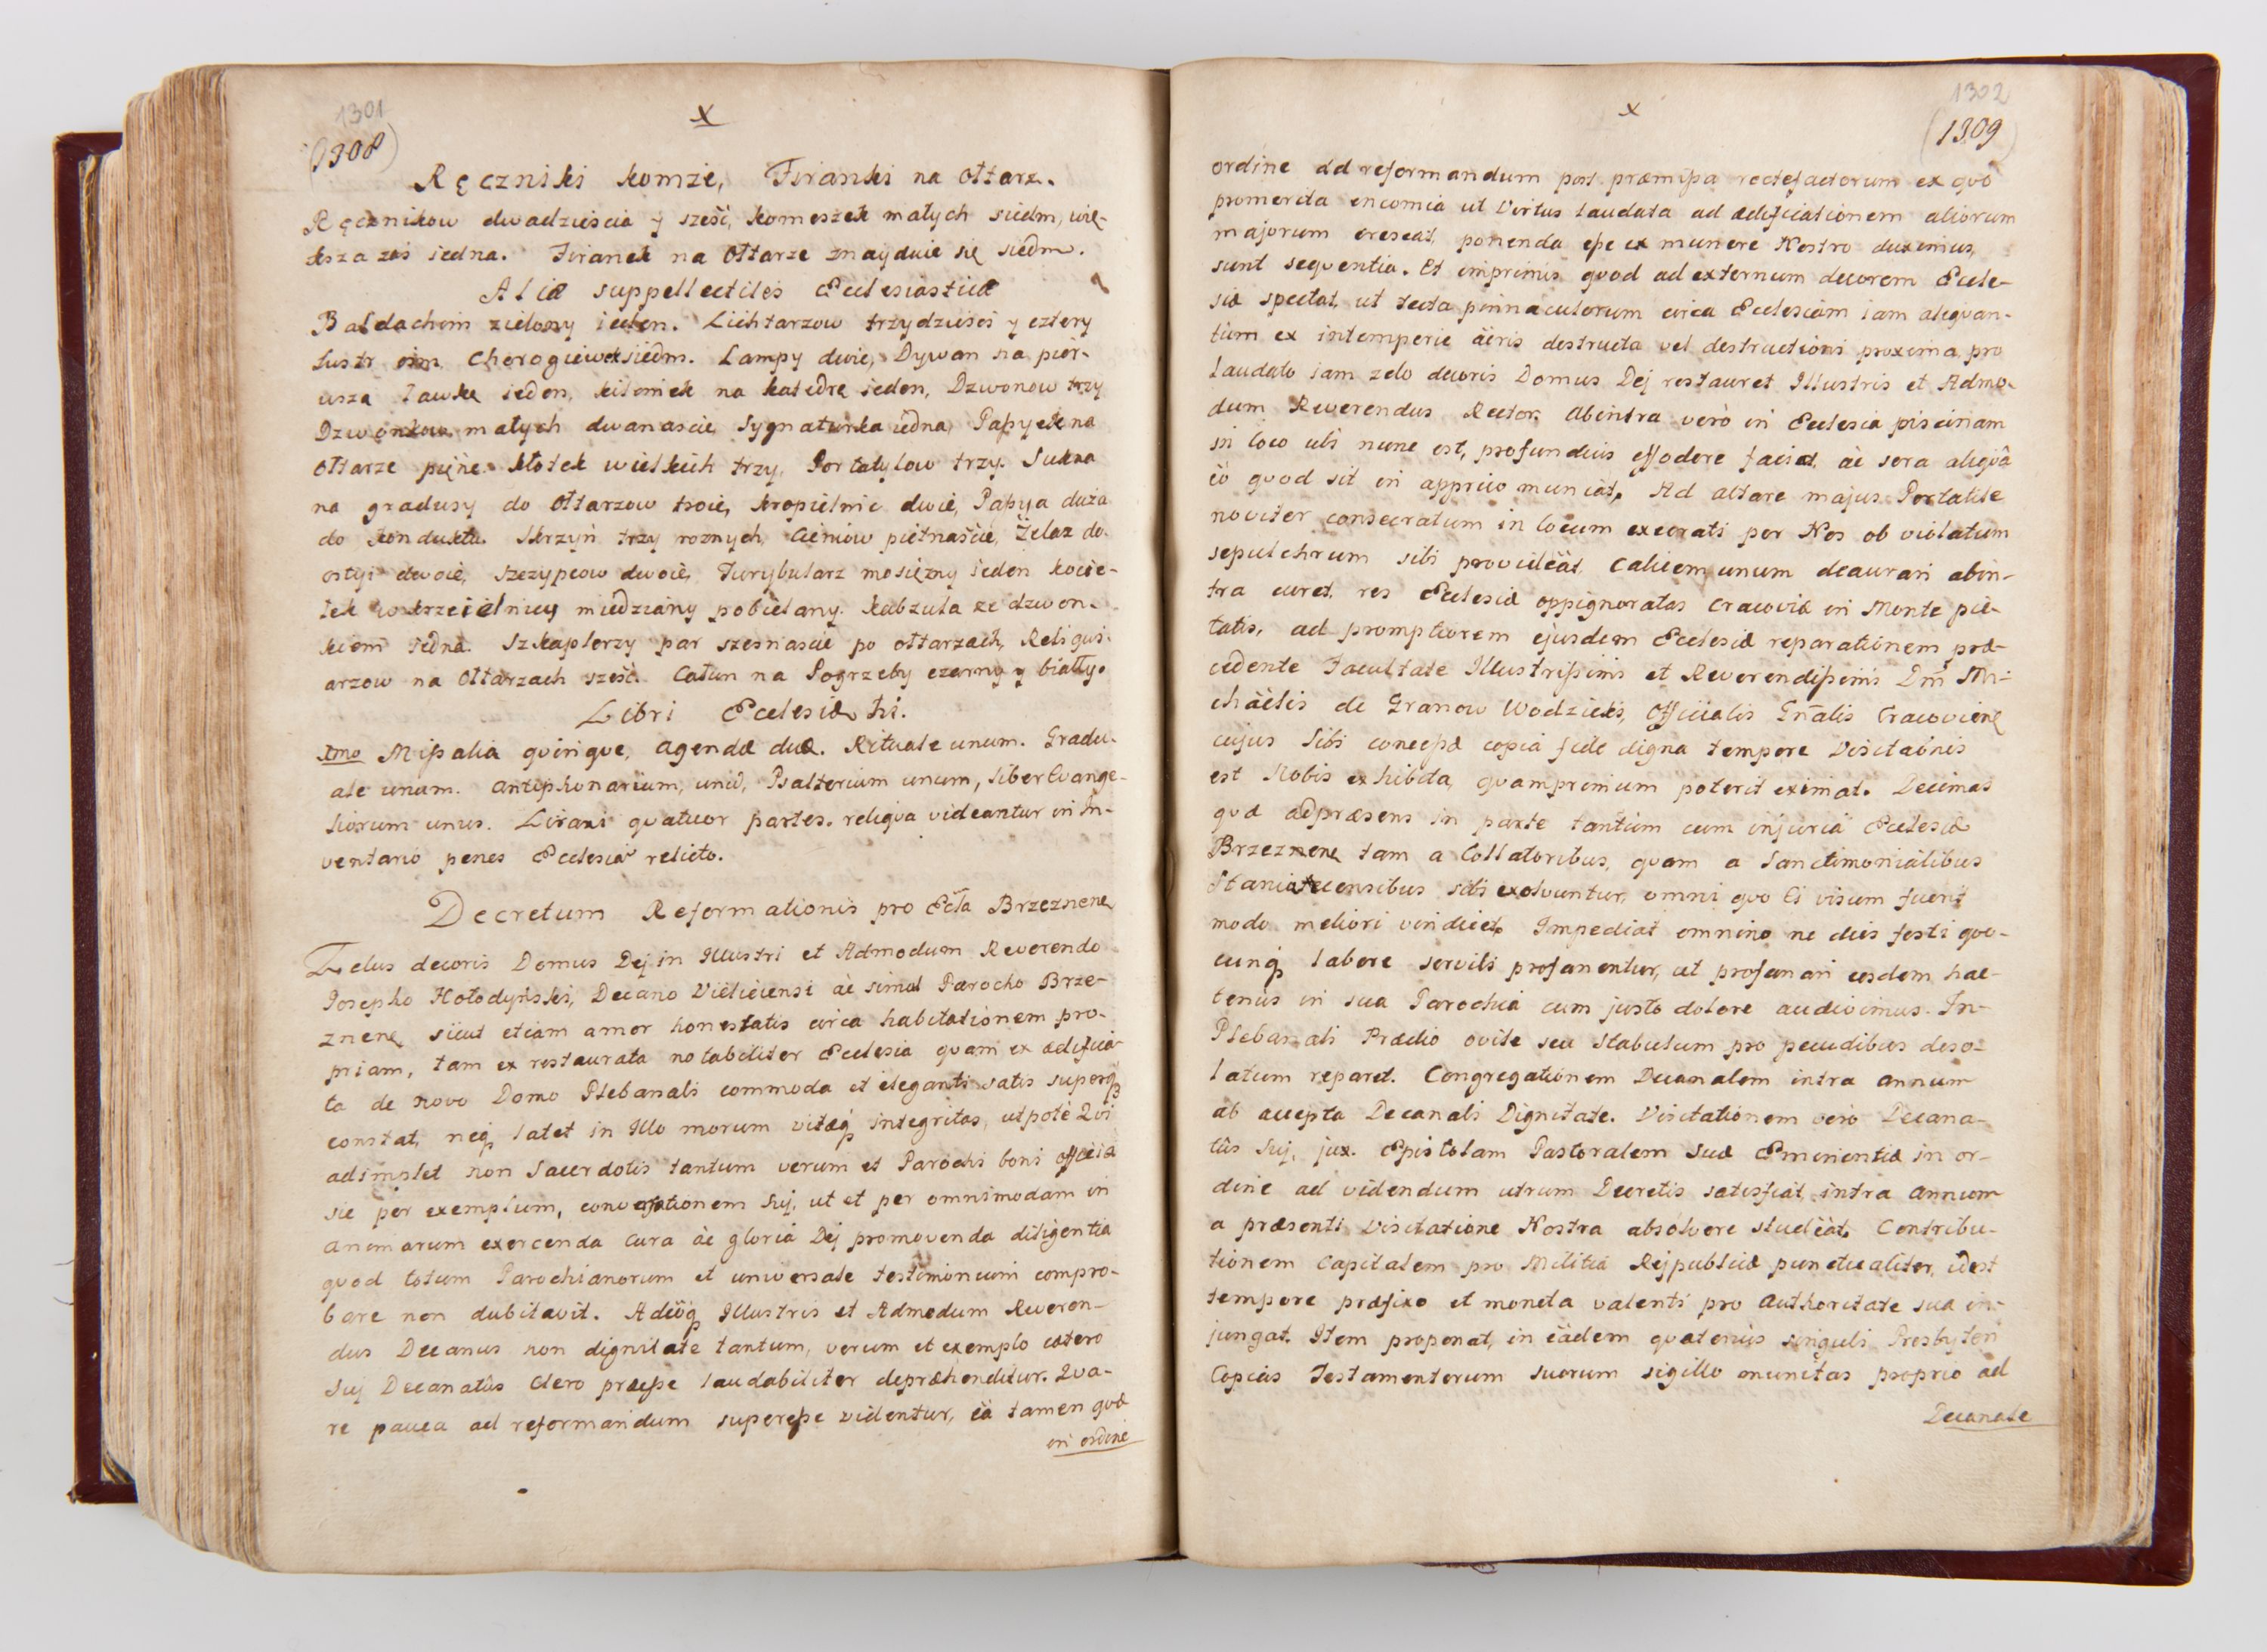 1301
x
1308)
Ręczniki komże, Firanki na Ołtarz.
Ręcznikow dwadzieścia y sześć, komeszek małych siedm, wię-
ksza zaś iedna. Firanek na Ołtarze znayduie się siedm.
Aliæ suppellectiles Ecclesiasticæ
Baldachim zielony ieden. Lichtarzow trzydzieści y cztery
Lustr ośm. Chorogiewek siedm. Lampy dwie, Dywan na pier-
wszą Ławkę ieden, kilimek na katedrę ieden, Dzwonow trzy
Dzwonkow małych dwanaście, Sygnaturka iedna, Passyek na
Ołtarze pięńc. kłotek wielkich trzy, Portatylow trzy. Sukna
na gradusy do Ołtarzow troie, kropielnic dwie, Passya duża
do konduktu. Skrzyń trzy roznych, Cieniow piętnaście, Żelaz do
ostyi dwoie, szczypcow dwoie, Turybularz mosiężny ieden kocie-
łek w krzcielnicy miedziany pobielany. kabzula ze dzwon-
kiem iedna. Szkaplerzy par szesnaście po ołtarzach, Reliqui-
arzow na Ołtarzach sześć. Całun na Pogrzeby czarny y biały.
Libri Ecclesiæ hi.
Imo Missalia qvinqve, agendæ duæ. Rituale unum. Gradu-
ale unum. Antiphonarium, unū, Psalterium unum, Liber Evange-
liorum unus. Lirani qvatuor partes. reliqva videantur in In-
ventario penes Ecclesiā relicto.
Decretum Reformationis pro Ecłā Brzeznenę
Zelus decoris Domus Dej in Illustri et Admodum Reverendo
Josepho Hołodyński, Decano Vieliciensi ac simul Parocho Brze-
znenę, sicut etiam amor honestatis circa habitationem pro-
priam, tam ex restaurata notabiliter Ecclesia qvam ex ædifica-
ta de novo Domo Plebanali commoda et eleganti satis superq
constat, neq latet in Illo morum vitæq integritas, utpote Qvi
adimplet non Sacerdotis tantum verum et Parochi boni officia
sic per exemplum, conversationem Suj, ut et per omnimodam in
animarum exercenda cura ac gloria Dej promovenda diligentia
qvod totum Parochianorum et universale testimonium compro-
bare non dubitavit. Adeoq Illustris et Admodum Reveren-
dus Decanus non dignitate tantum, verum et exemplo cætero
Suj Decanatûs Clero præesse laudabiliter depræhenditur. Qva-
re pauca ad reformandum superesse videntur, ea tamen qvæ
in ordine
1302
x
(1309)
ordine ad reformandum post præmissa rectefactorum ex qvo
promerita encomia ut Virtus laudata ad ædificationem aliorum
majorum crescat, ponenda esse ex munere Nostro duximus,
sunt seqventia. Et imprimis qvod ad externum decorem Eccle-
siæ spectat, ut tecta pinnaculorum circa Ecclesiam iam aliqvan-
tùm ex intemperie äeris destructa vel destructioni proxima, pro
laudato iam zelo decoris Domus Dej restauret Illustris et Admo-
dum Reverendus Rector. Abintra verò in Ecclesia piscinam
in loco ubi nunc est, profundius effodere faciat, ac sera aliqvâ
eò qvod sit in apprico muniat. Ad altare majus Portatile
noviter consecratum in locum execrati per Nos ob violatum
sepulchrum sibi provideat. Calicem unum deaurari abin-
tra curet, res Ecclesiæ oppignoratas Cracoviæ in Monte pie-
tatis, ad promptiorem ejusdem Ecclesiæ reparationem, præ-
cedente Facultate Illustrissimi et Reverendissimi Dni Mi-
chäelis de Granow Wodzicki, Officialis Gnalis Cracovienę
cujus Sibi concessæ copia fide digna tempore Visitaonis
est Nobis exhibita, qvamprimum poterit eximat. Decimas
qvæ adpræsens in parte tantùm cum injuria Ecclesiæ
Brzeznenę tam a Collatoribus, qvam a Sanctimonialibus
Staniatecensibus sibi exolvuntur, omni qvo Ei visum fuerit
modo meliori vindicet. Impediat omnino ne dies festi qvo-
cunq labore servili profanentur, ut profanari eosdem hac-
tenùs in sua Parochia cum justo dolore audivimus. In
Plebanali Prædio ovile seu stabulum pro pecudibus deso-
latum reparet. Congregationem Decanalem intra annum
ab accepta Decanali Dignitate. Visitationem verò Decana-
tûs Suj, jux. Epistolam Pastoralem Suæ Eminentiæ in or-
dine ad videndum utrum Decretis satisfiat, intra annum
a præsenti Visitatione Nostra absolvere studeat. Contribu-
tionem Capitalem pro Militia Rejpublicæ punctualiter, idest
tempore præfixo et moneta valenti pro Authoritate sua in-
jungat. Item proponat, in eâdem qvatenùs singuli Presbyteri
Copias Testamentorum suorum sigillo munitas proprio ad
Decanale